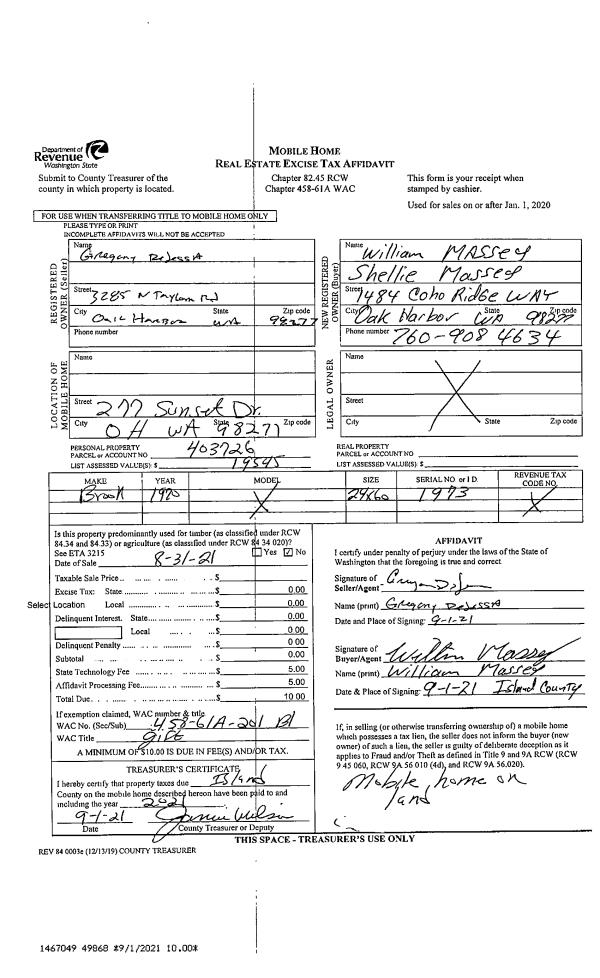 Department of
Revenue
Washington State
Submit to County Treasurer of the
county in which property is located.
MOBILE HOME
REAL ESTATE EXCISE TAX AFFIDAVIT
Chapter 82.45 RCW
Chapter 458-61A WAC
This form is your receipt when
stamped by cashier.
Used for sales on or after Jan. 1, 2020
FOR USE WHEN TRANSFERRING TITLE TO MOBILE HOME ONLY
PLEASE TYPE OR PRINT
INCOMPLETE AFFIDAVITS WILL NOT BE ACCEPTED
REGISTERED
OWNER (Seller)
Name
Gregory
Street 3285 N Taylor Rd
City Oak Harbor State WA Zip code 98277
Phone number
NEW REGISTERED
OWNER (Buyer)
Name William Massey
Shellie Massey
Street 1484 Coho Ridge WAY
City Oak Harbor State WA Zip code 98277
Phone number 760-908 4634
LOCATION OF
MOBILE HOME
Name
Street 277 Sunset Dr.
City OH State WA 98277 Zip code
LEGAL OWNER
Name
Street
City State Zip code
PERSONAL PROPERTY
PARCEL or ACCOUNT NO 403726
LIST ASSESSED VALUE(S) $ 19545
REAL PROPERTY
PARCEL or ACCOUNT NO
LIST ASSESSED VALUE(S) $
MAKE YEAR MODEL SIZE SERIAL NO or I D. REVENUE TAX
CODE NO.
Brook 1970 24x60 1973
Is this property predominantly used for timber (as classified under RCW
84.34 and 84.33) or agriculture (as classified under RCW 84 34 020)?
See ETA 3215 Yes No
Date of Sale 8-31-21
Taxable Sale Price $
Excise Tax: State $ 0.00
Select Location Local $ 0.00
Delinquent Interest. State $ 0.00
Local $ 0 00
Delinquent Penalty $ 0.00
Subtotal $ 0.00
State Technology Fee $ 5.00
Affidavit Processing Fee $ 5.00
Total Due $ 10 00
If exemption claimed, WAC number & title
WAC No. (Sec/Sub) 458-61A-201 B1
WAC Title gift
A MINIMUM OF $10.00 IS DUE IN FEE(S) AND/OR TAX.
TREASURER'S CERTIFICATE
I hereby certify that property taxes due Island
County on the mobile home described hereon have been paid to and
including the year 2021
9-1-21
Date County Treasurer or Deputy
AFFIDAVIT
I certify under penalty of perjury under the laws of the State of
Washington that the foregoing is true and correct
Signature of
Seller/Agent
Name (print) Gregory
Date and Place of Signing: 9-1-21
Signature of
Buyer/Agent William Massey
Name (print) William Massey
Date & Place of Signing: 9-1-21 Island County
If, in selling (or otherwise transferring ownership of) a mobile home
which possesses a tax lien, the seller does not inform the buyer (new
owner) of such a lien, the seller is guilty of deliberate deception as it
applies to Fraud and/or Theft as defined in Title 9 and 9A RCW (RCW
9 45 060, RCW 9A 56 010 (4d), and RCW 9A 56,020).
Mobile home on
land
THIS SPACE - TREASURER'S USE ONLY
REV 84 0003e (12/13/19) COUNTY TREASURER
1467049 49868 *9/1/2021 10.00*